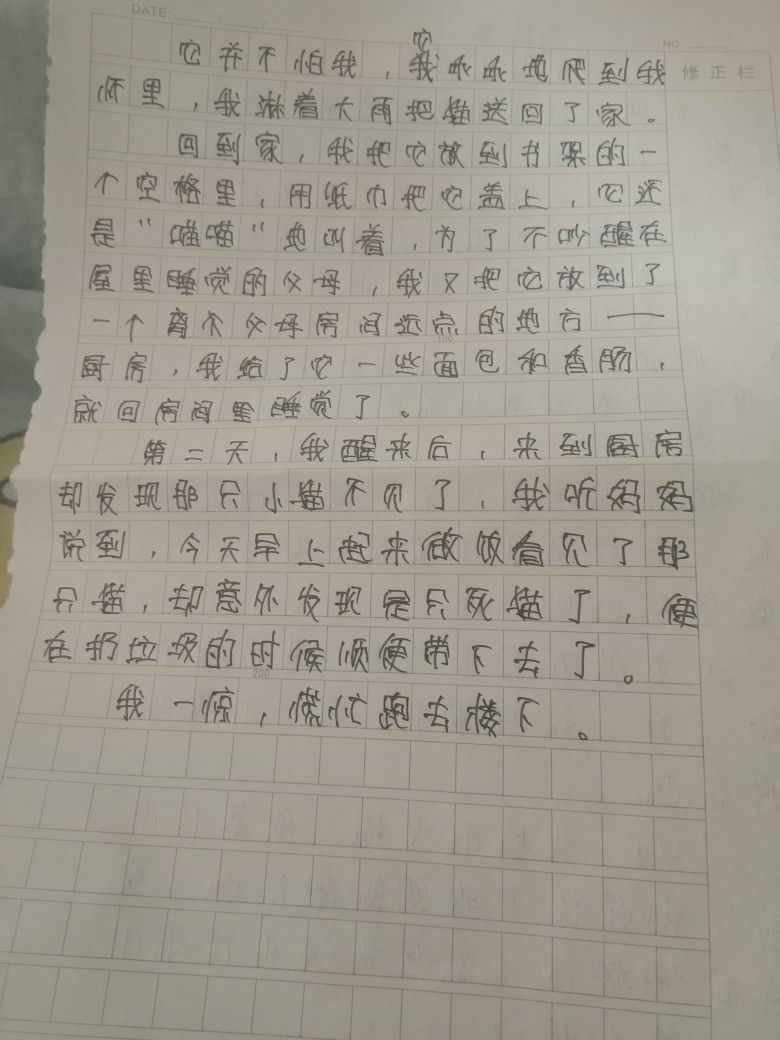 DATE: / /
NO.
修正栏
它
它并不怕我，我乖乖地爬到我
怀里，我淋着大雨把猫送回了家。
回到家，我把它放到书架的一
个空格里，用纸巾把它盖上，它还
是“喵喵“地叫着，为了不吵醒在
屋里睡觉的父母，我又把它放到了
一个离父母房间远点的地方——
100
厨房，我给了它一些面包和香肠，
就回房间里睡觉了。
第二天，我醒来后，来到厨房
却发现那只小猫不见了，我听妈妈
说到，今天早上起来做饭看见了那
只猫，却意外发现是只死猫了，便
在扔垃圾的时候顺便带下去了。
200
我一惊，慌忙跑去楼下。